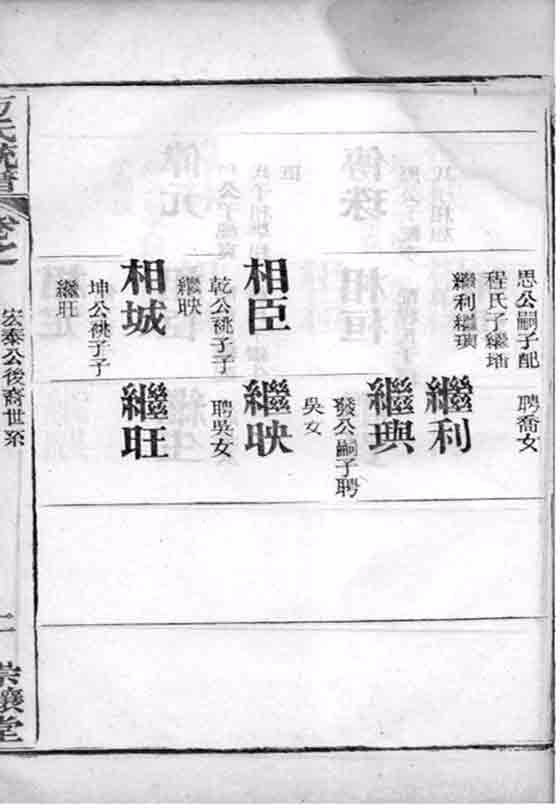 思公嗣子配
程氏子繼
繼利繼璵
相臣
乾公祧子子
繼映
相城
坤公祧子子
繼旺
聘喬女
繼利
繼璵
發公嗣子聘
吳女
繼映
聘吳女
繼旺
氏統譜
卷之
宏泰公後裔世系
二
崇讓堂